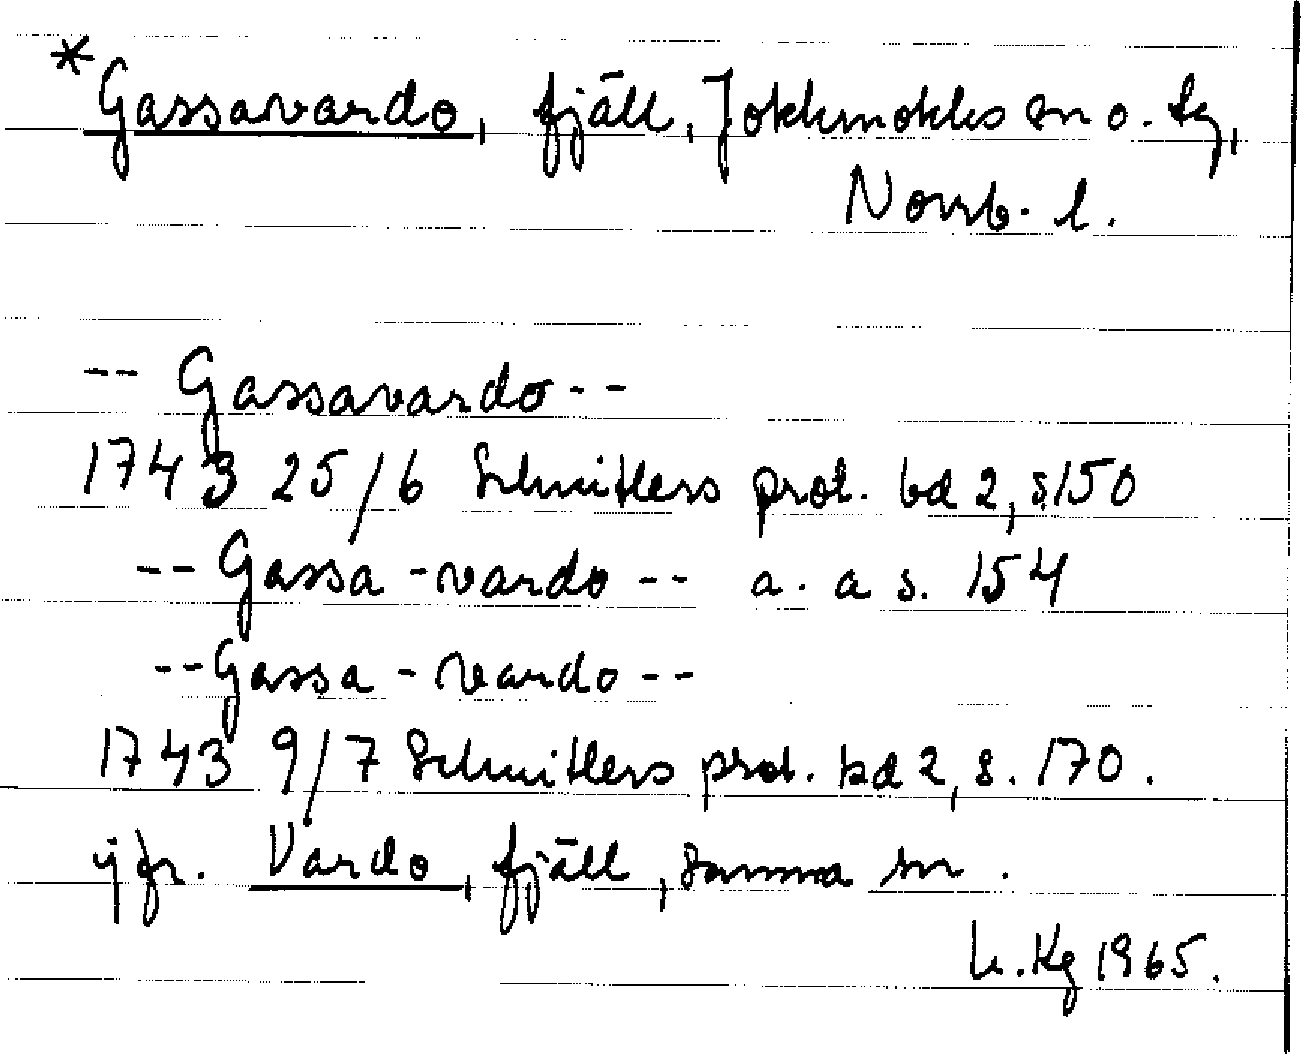 *Gassavardo, fjäll, Jokkmokks sn o. tg,
Norrb. l.
-- Gassavardo --
1743 25/6 Schnitlers prot. bd 2, s. 150
-- Gassa-vardo -- a. a s. 154
-- Gassa-vardo --
1743 9/7 Schnitlers prot. bd 2, s. 170.
jfr. Vardo, fjäll, samma sn.
Kg 1965.